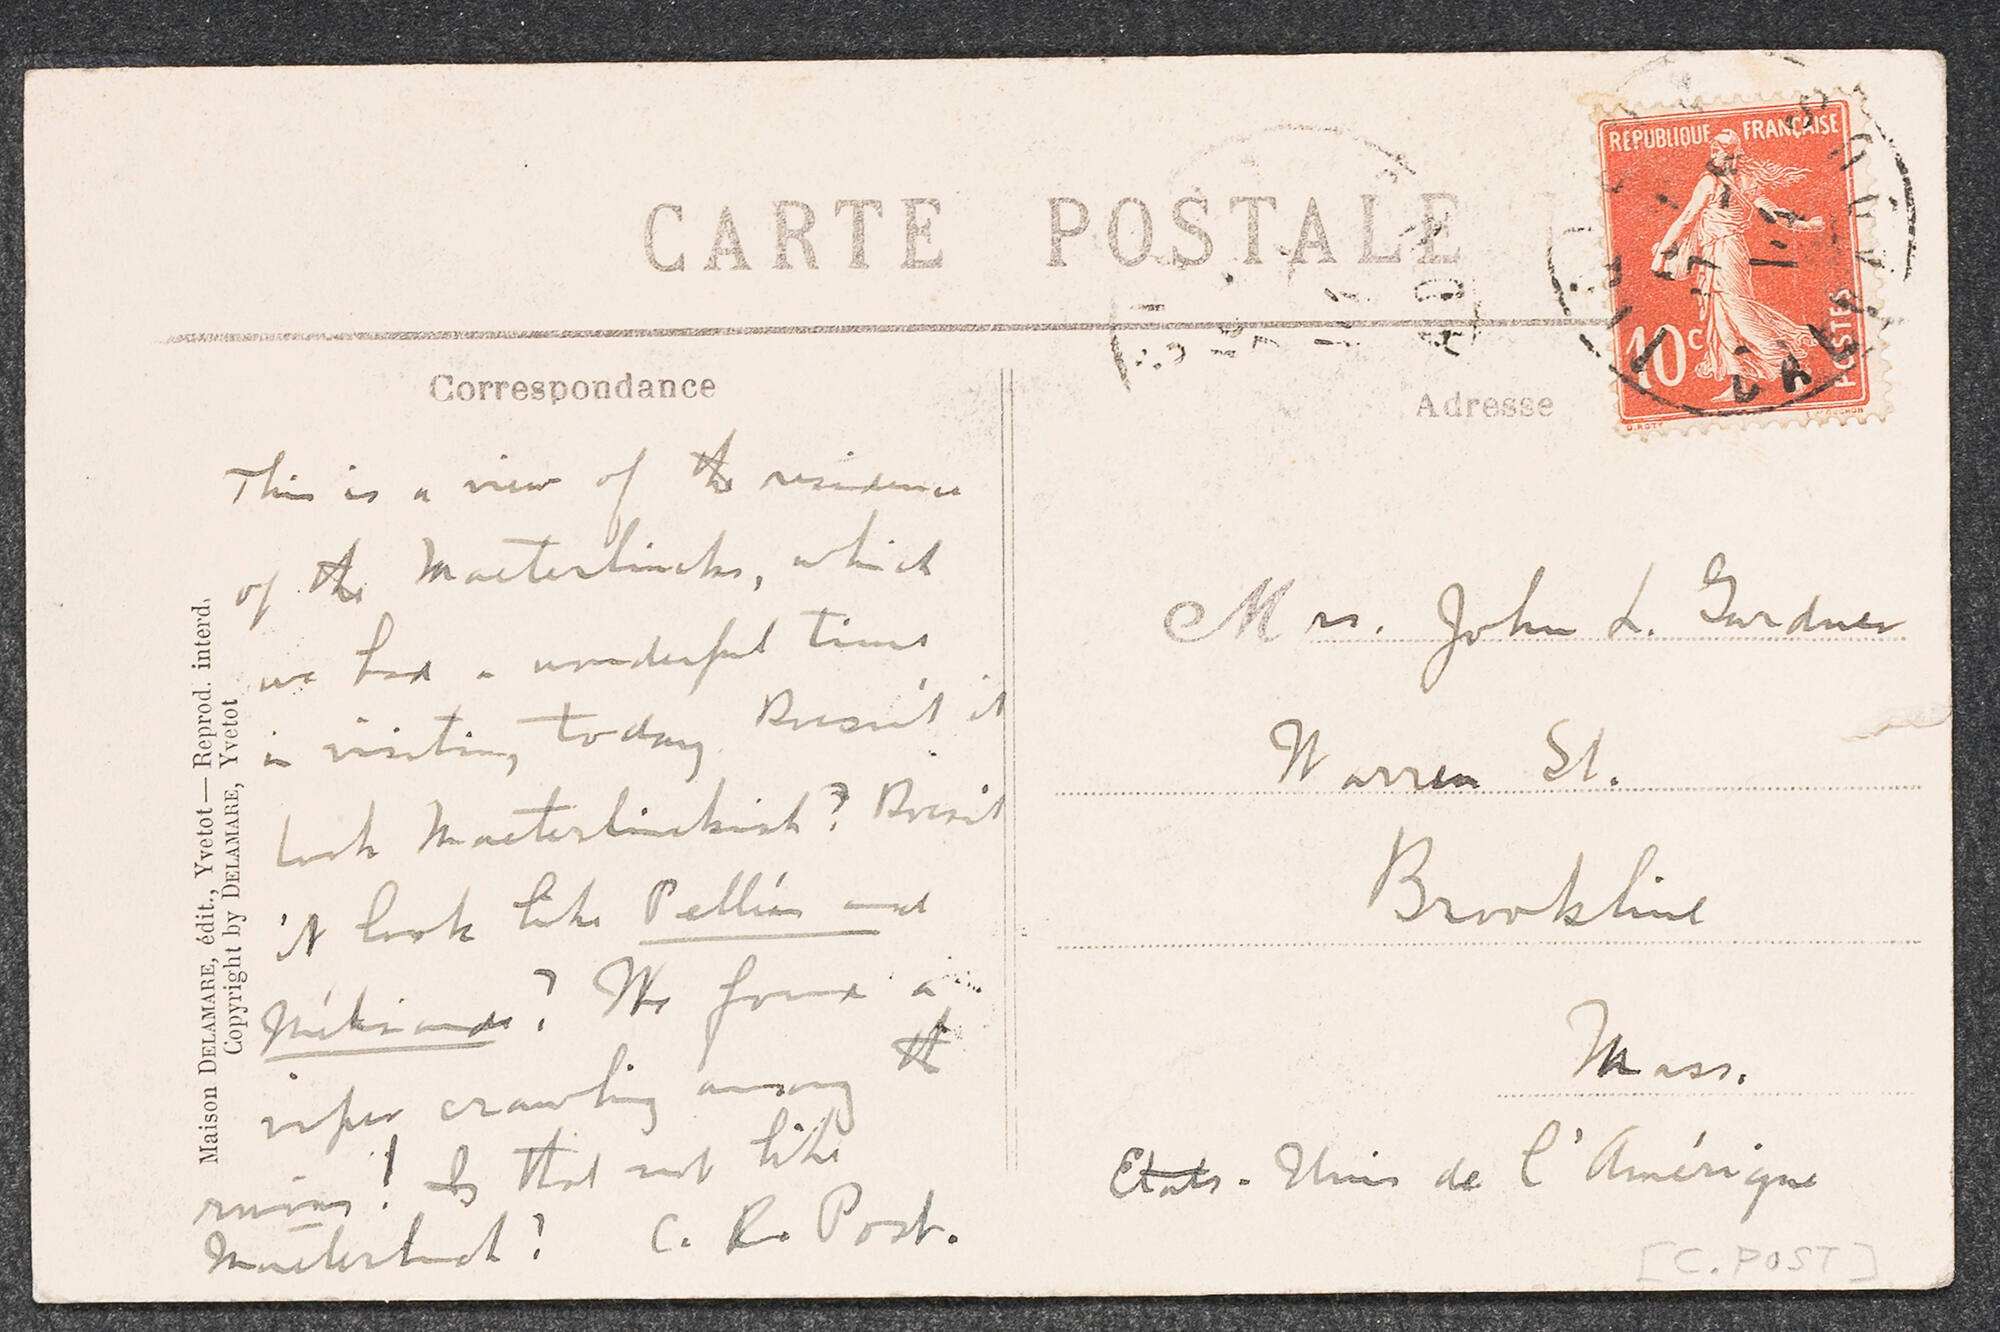 CARTE POSTALE
Correspondance
This is a view of the residence
of the Maeterlincks, which
we had a wonderful time
in visiting today. Doesn't it
look Maeterlinckish? Doesn't
it look like Pelléas and
Mélisande? We found a
viper crawling among the
ruins! Is that not like
Maeterlinck? C. R. Post.
Maison DELAMARE, édit., Yvetot — Reprod. interd.
Copyright by DELAMARE, Yvetot
Adresse
REPUBLIQUE FRANÇAISE
10c
POSTES
O. ROTY
Mrs. John L. Gardner
Warren St.
Brookline
Mass.
Etats-Unis de l'Amérique
[C. POST]